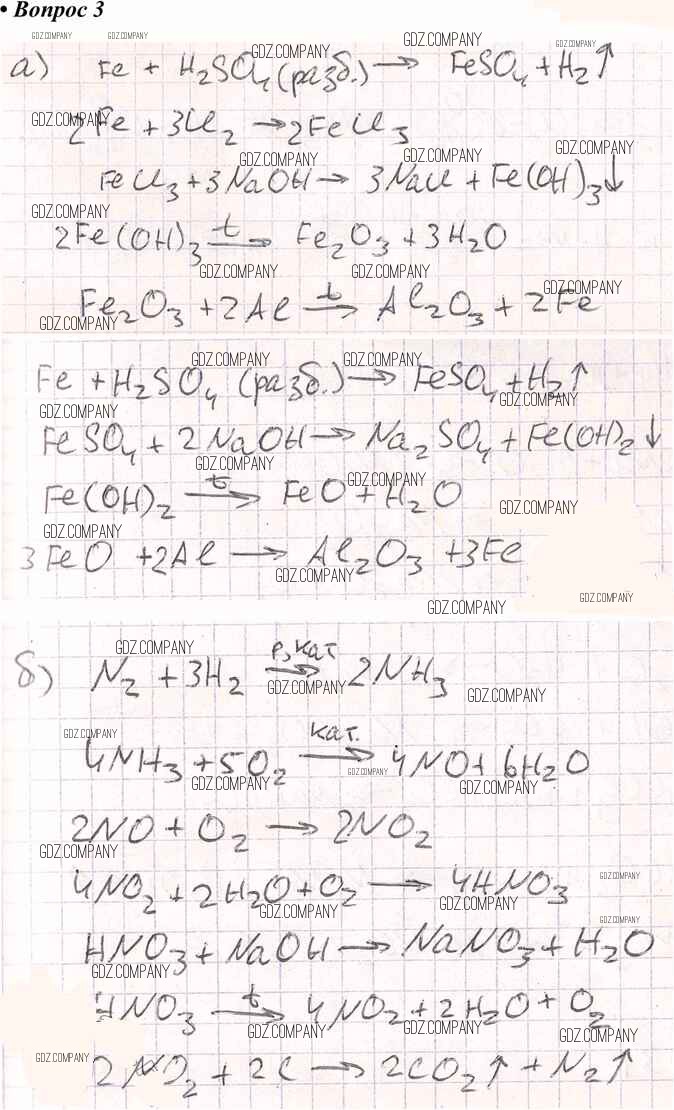 • Вопрос 3
GDZ.COMPANY GDZ.COMPANY GDZ.COMPANY GDZ.COMPANY GDZ.COMPANY
а) Fe + H₂SO₄ (разб.) → FeSO₄ + H₂↑
GDZ.COMPANY
2Fe + 3Cl₂ → 2FeCl₃
GDZ.COMPANY GDZ.COMPANY GDZ.COMPANY
FeCl₃ + 3NaOH → 3NaCl + Fe(OH)₃↓
GDZ.COMPANY
2Fe(OH)₃ t→ Fe₂O₃ + 3H₂O
GDZ.COMPANY GDZ.COMPANY GDZ.COMPANY
Fe₂O₃ + 2Al t→ Al₂O₃ + 2Fe
GDZ.COMPANY
GDZ.COMPANY GDZ.COMPANY
Fe + H₂SO₄ (разб.) → FeSO₄ + H₂↑
GDZ.COMPANY GDZ.COMPANY
FeSO₄ + 2NaOH → Na₂SO₄ + Fe(OH)₂↓
GDZ.COMPANY GDZ.COMPANY
Fe(OH)₂ t→ FeO + H₂O
GDZ.COMPANY GDZ.COMPANY
3FeO + 2Al → Al₂O₃ + 3Fe
GDZ.COMPANY
GDZ.COMPANY GDZ.COMPANY
GDZ.COMPANY
б) N₂ + 3H₂ p, кат→ 2NH₃
GDZ.COMPANY GDZ.COMPANY
GDZ.COMPANY
4NH₃ + 5O₂ кат.→ 4NO + 6H₂O
GDZ.COMPANY GDZ.COMPANY GDZ.COMPANY
2NO + O₂ → 2NO₂
GDZ.COMPANY
4NO₂ + 2H₂O + O₂ → 4HNO₃
GDZ.COMPANY GDZ.COMPANY GDZ.COMPANY
GDZ.COMPANY
HNO₃ + NaOH → NaNO₃ + H₂O
GDZ.COMPANY
HNO₃ t→ 4NO₂ + 2H₂O + O₂
GDZ.COMPANY GDZ.COMPANY GDZ.COMPANY
GDZ.COMPANY
2NO₂ + 2C → 2CO₂↑ + N₂↑